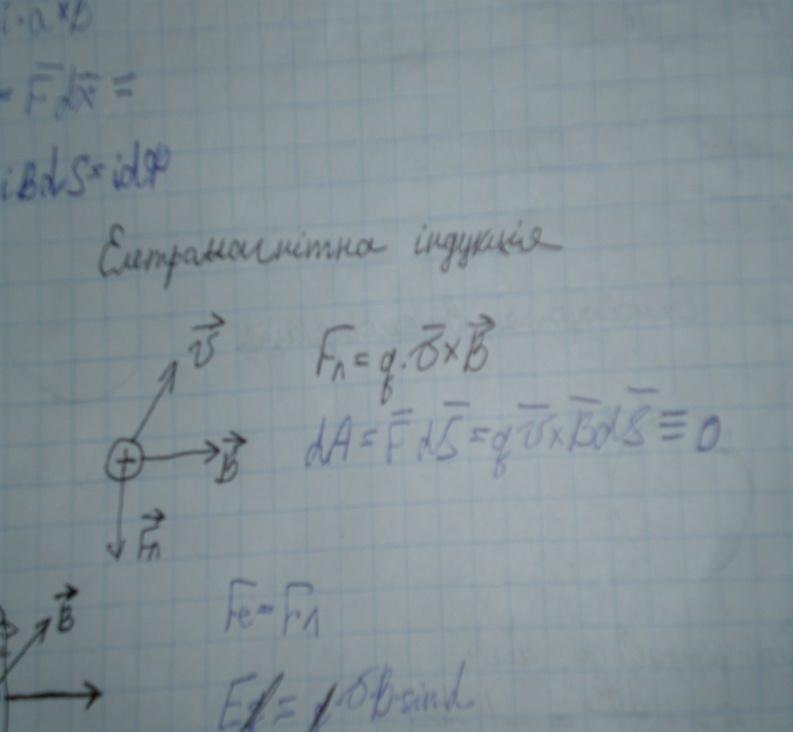 i·a×B
= F̅ dx̅ =
iBdS = idΦ
Елетромагнітна індукція
v⃗
F̅л = q·v̅×B⃗
dA = F̅ dS̅ = q v̅×B̅ dS̅ ≡ 0
B⃗
F⃗л
B⃗
F̅e = F̅л
Eq = qvB·sinα